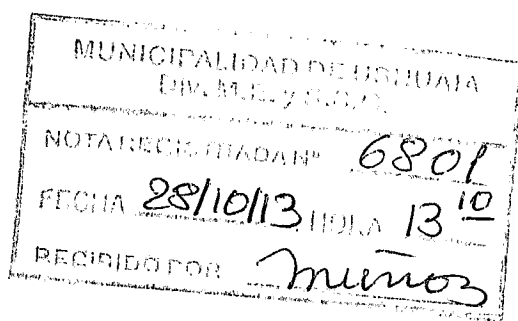 MUNICIPALIDAD DE USHUAIA
DIV. M.E. y
NOTA REGISTRADA Nº 6801
FECHA 28/10/13 HORA 13 10
RECIBIDO POR Muñoz